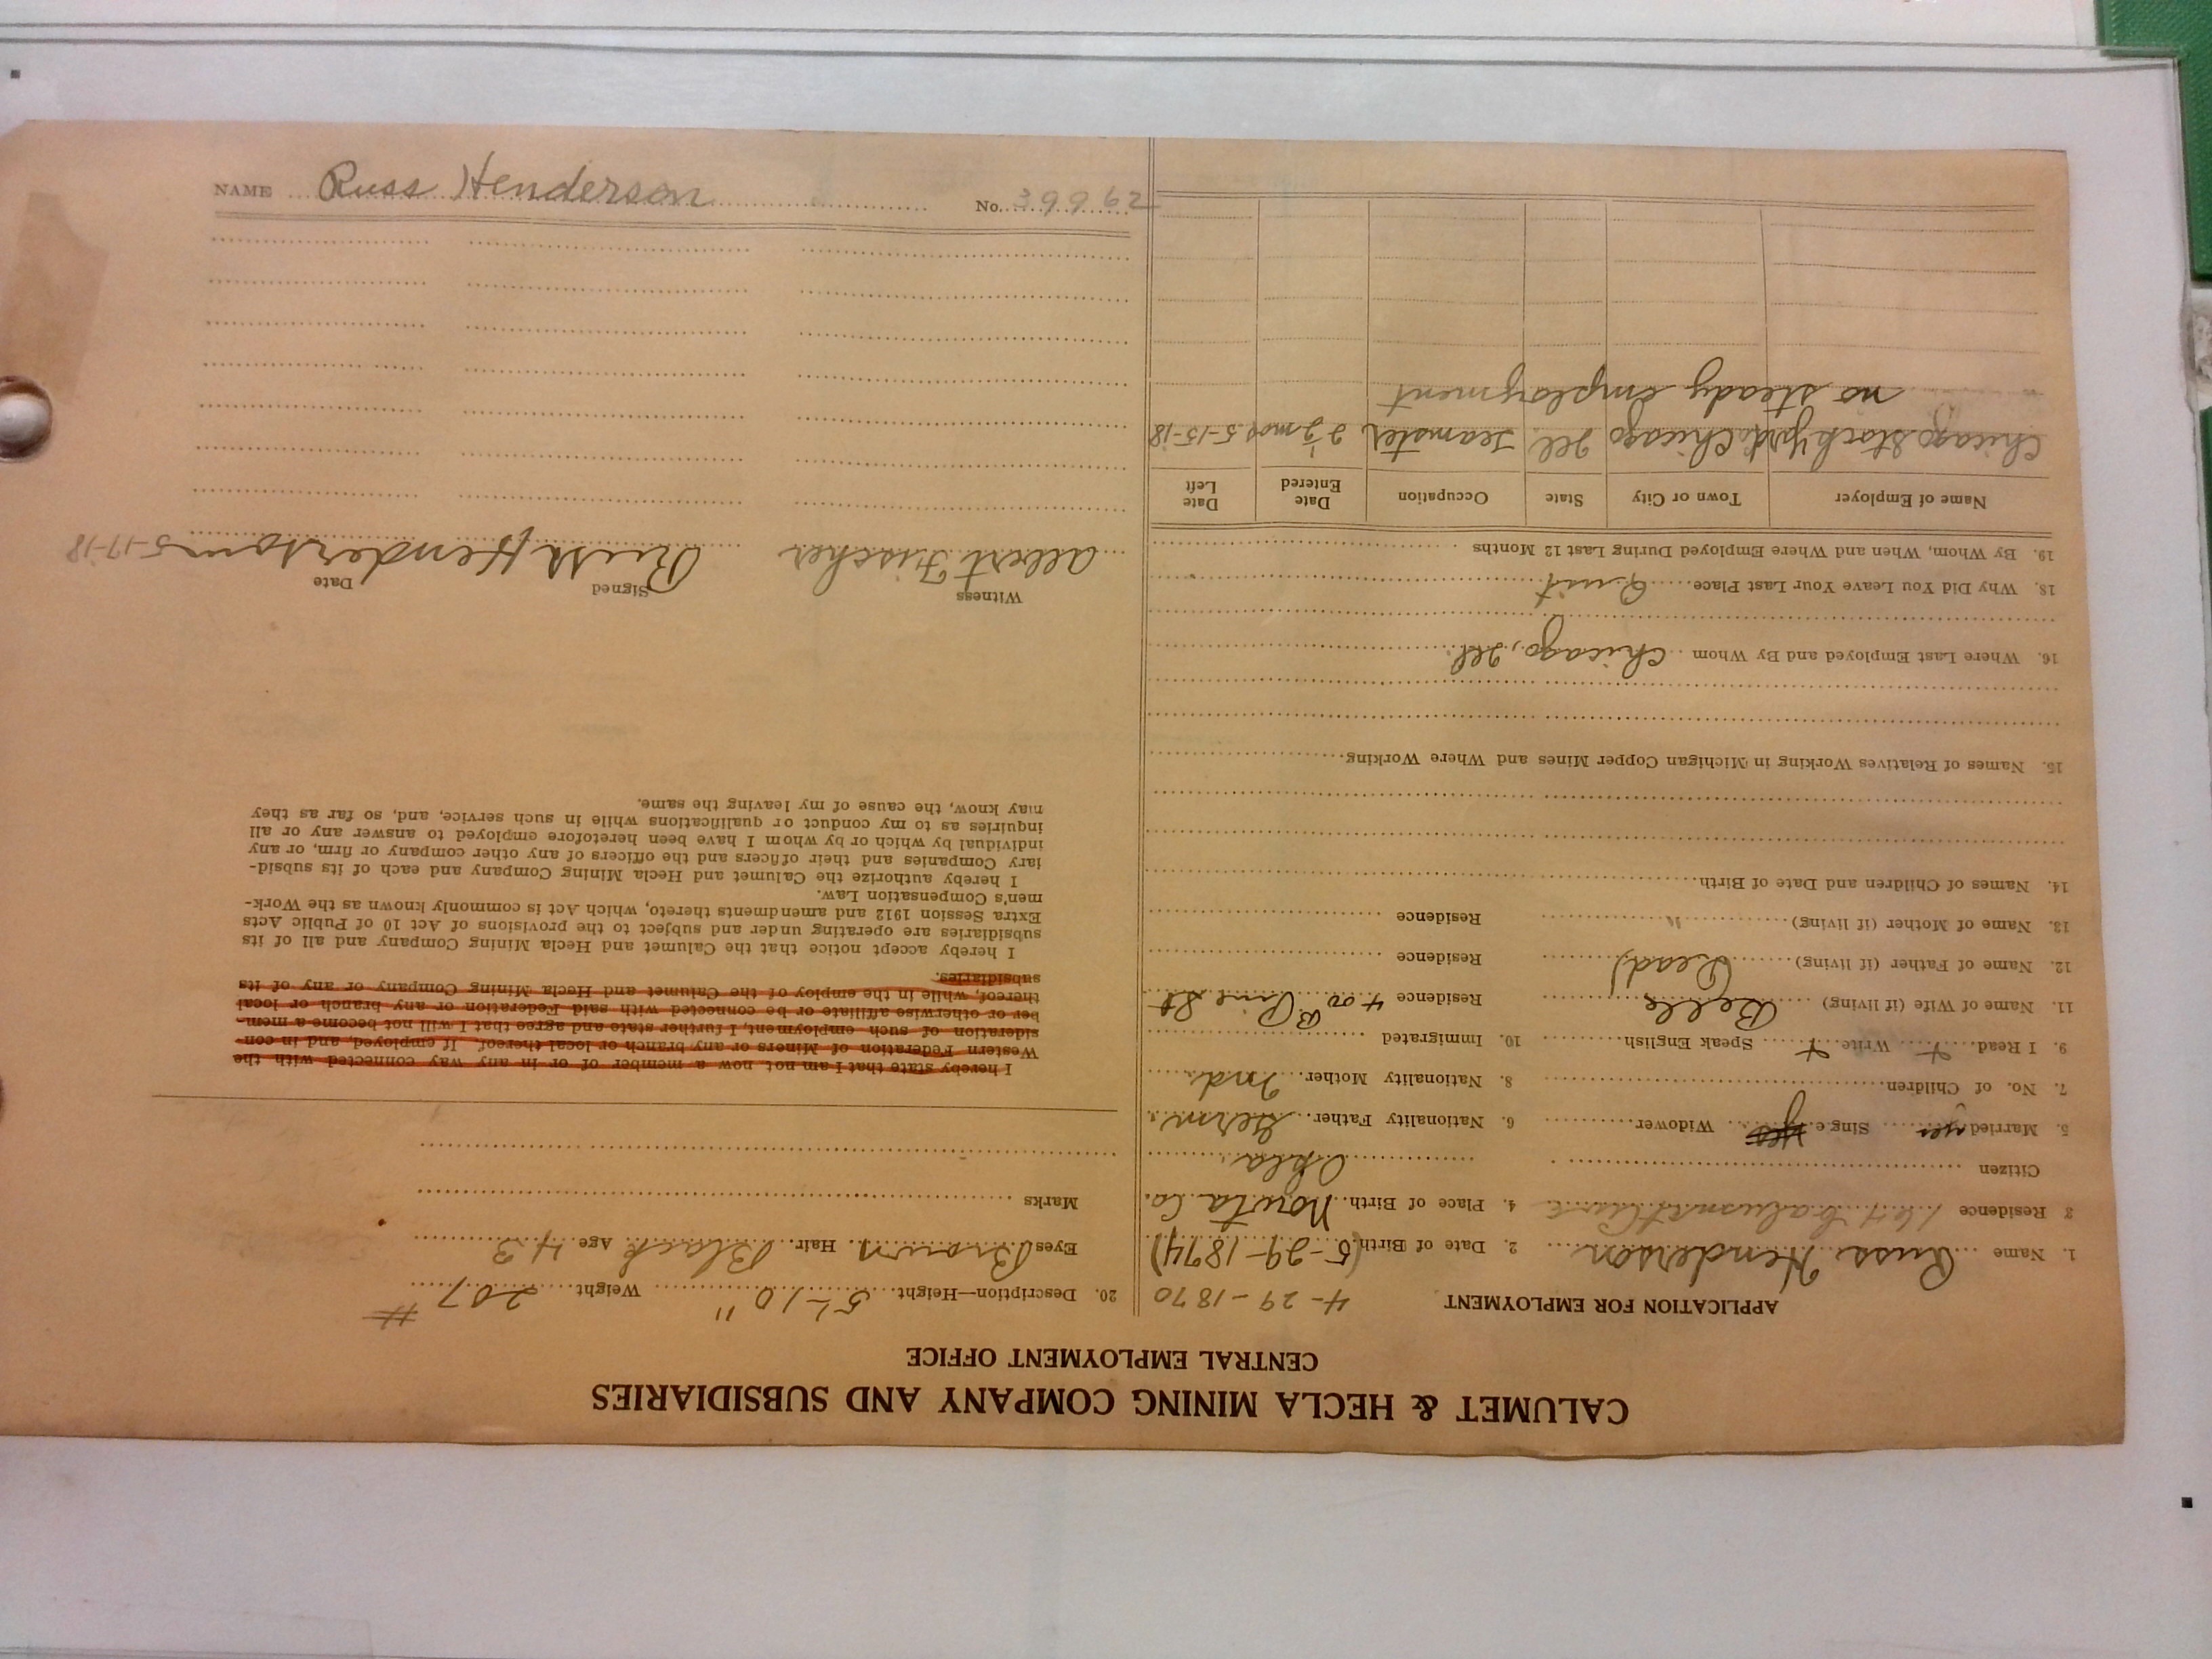 CALUMET & HECLA MINING COMPANY AND SUBSIDIARIES
CENTRAL EMPLOYMENT OFFICE
APPLICATION FOR EMPLOYMENT 4-29-1870
1. Name Russ Henderson 2. Date of Birth (5-29-1874)
3 Residence 4. Place of Birth Nowta Co.
Citizen Okla.
5. Married yes Sing e yes Widower 6. Nationality Father Germ.
7. No. of Children 8. Nationality Mother Ind.
9. I Read Write Speak English 10. Immigrated
11. Name of Wife (if living) Belle Residence 400 B. Pine St
12. Name of Father (if living) (Dead) Residence
13. Name of Mother (if living) " Residence
14. Names of Children and Date of Birth
15. Names of Relatives Working in Michigan Copper Mines and Where Working
16. Where Last Employed and By Whom Chicago, Ill.
18. Why Did You Leave Your Last Place Quit
19. By Whom, When and Where Employed During Last 12 Months
Name of Employer Town or City State Occupation Date Entered Date Left
Chicago Stock Yards Chicago Ill Teamster 2 1/2 mos. 5-15-18
no steady employment
20. Description—Height 5'-10" Weight 207 #
Eyes Brown Hair Black Age 43
Marks
I hereby state that I am not now a member of or in any way connected with the
Western Federation of Miners or any branch or local thereof. If employed, and in con-
sideration of such employment, I further state and agree that I will not become a mem-
ber or otherwise affiliate or be connected with said Federation or any branch or local
thereof, while in the employ of the Calumet and Hecla Mining Company or any of its
subsidiaries.
I hereby accept notice that the Calumet and Hecla Mining Company and all of its
subsidiaries are operating under and subject to the provisions of Act 10 of Public Acts
Extra Session 1912 and amendments thereto, which Act is commonly known as the Work-
men's Compensation Law.
I hereby authorize the Calumet and Hecla Mining Company and each of its subsid-
iary Companies and their officers and the officers of any other company or firm, or any
individual by which or by whom I have been heretofore employed to answer any or all
inquiries as to my conduct or qualifications while in such service, and, so far as they
may know, the cause of my leaving the same.
Witness Signed Date
Albert Fischer Russ Henderson 5-17-18
NAME Russ Henderson No. 39962